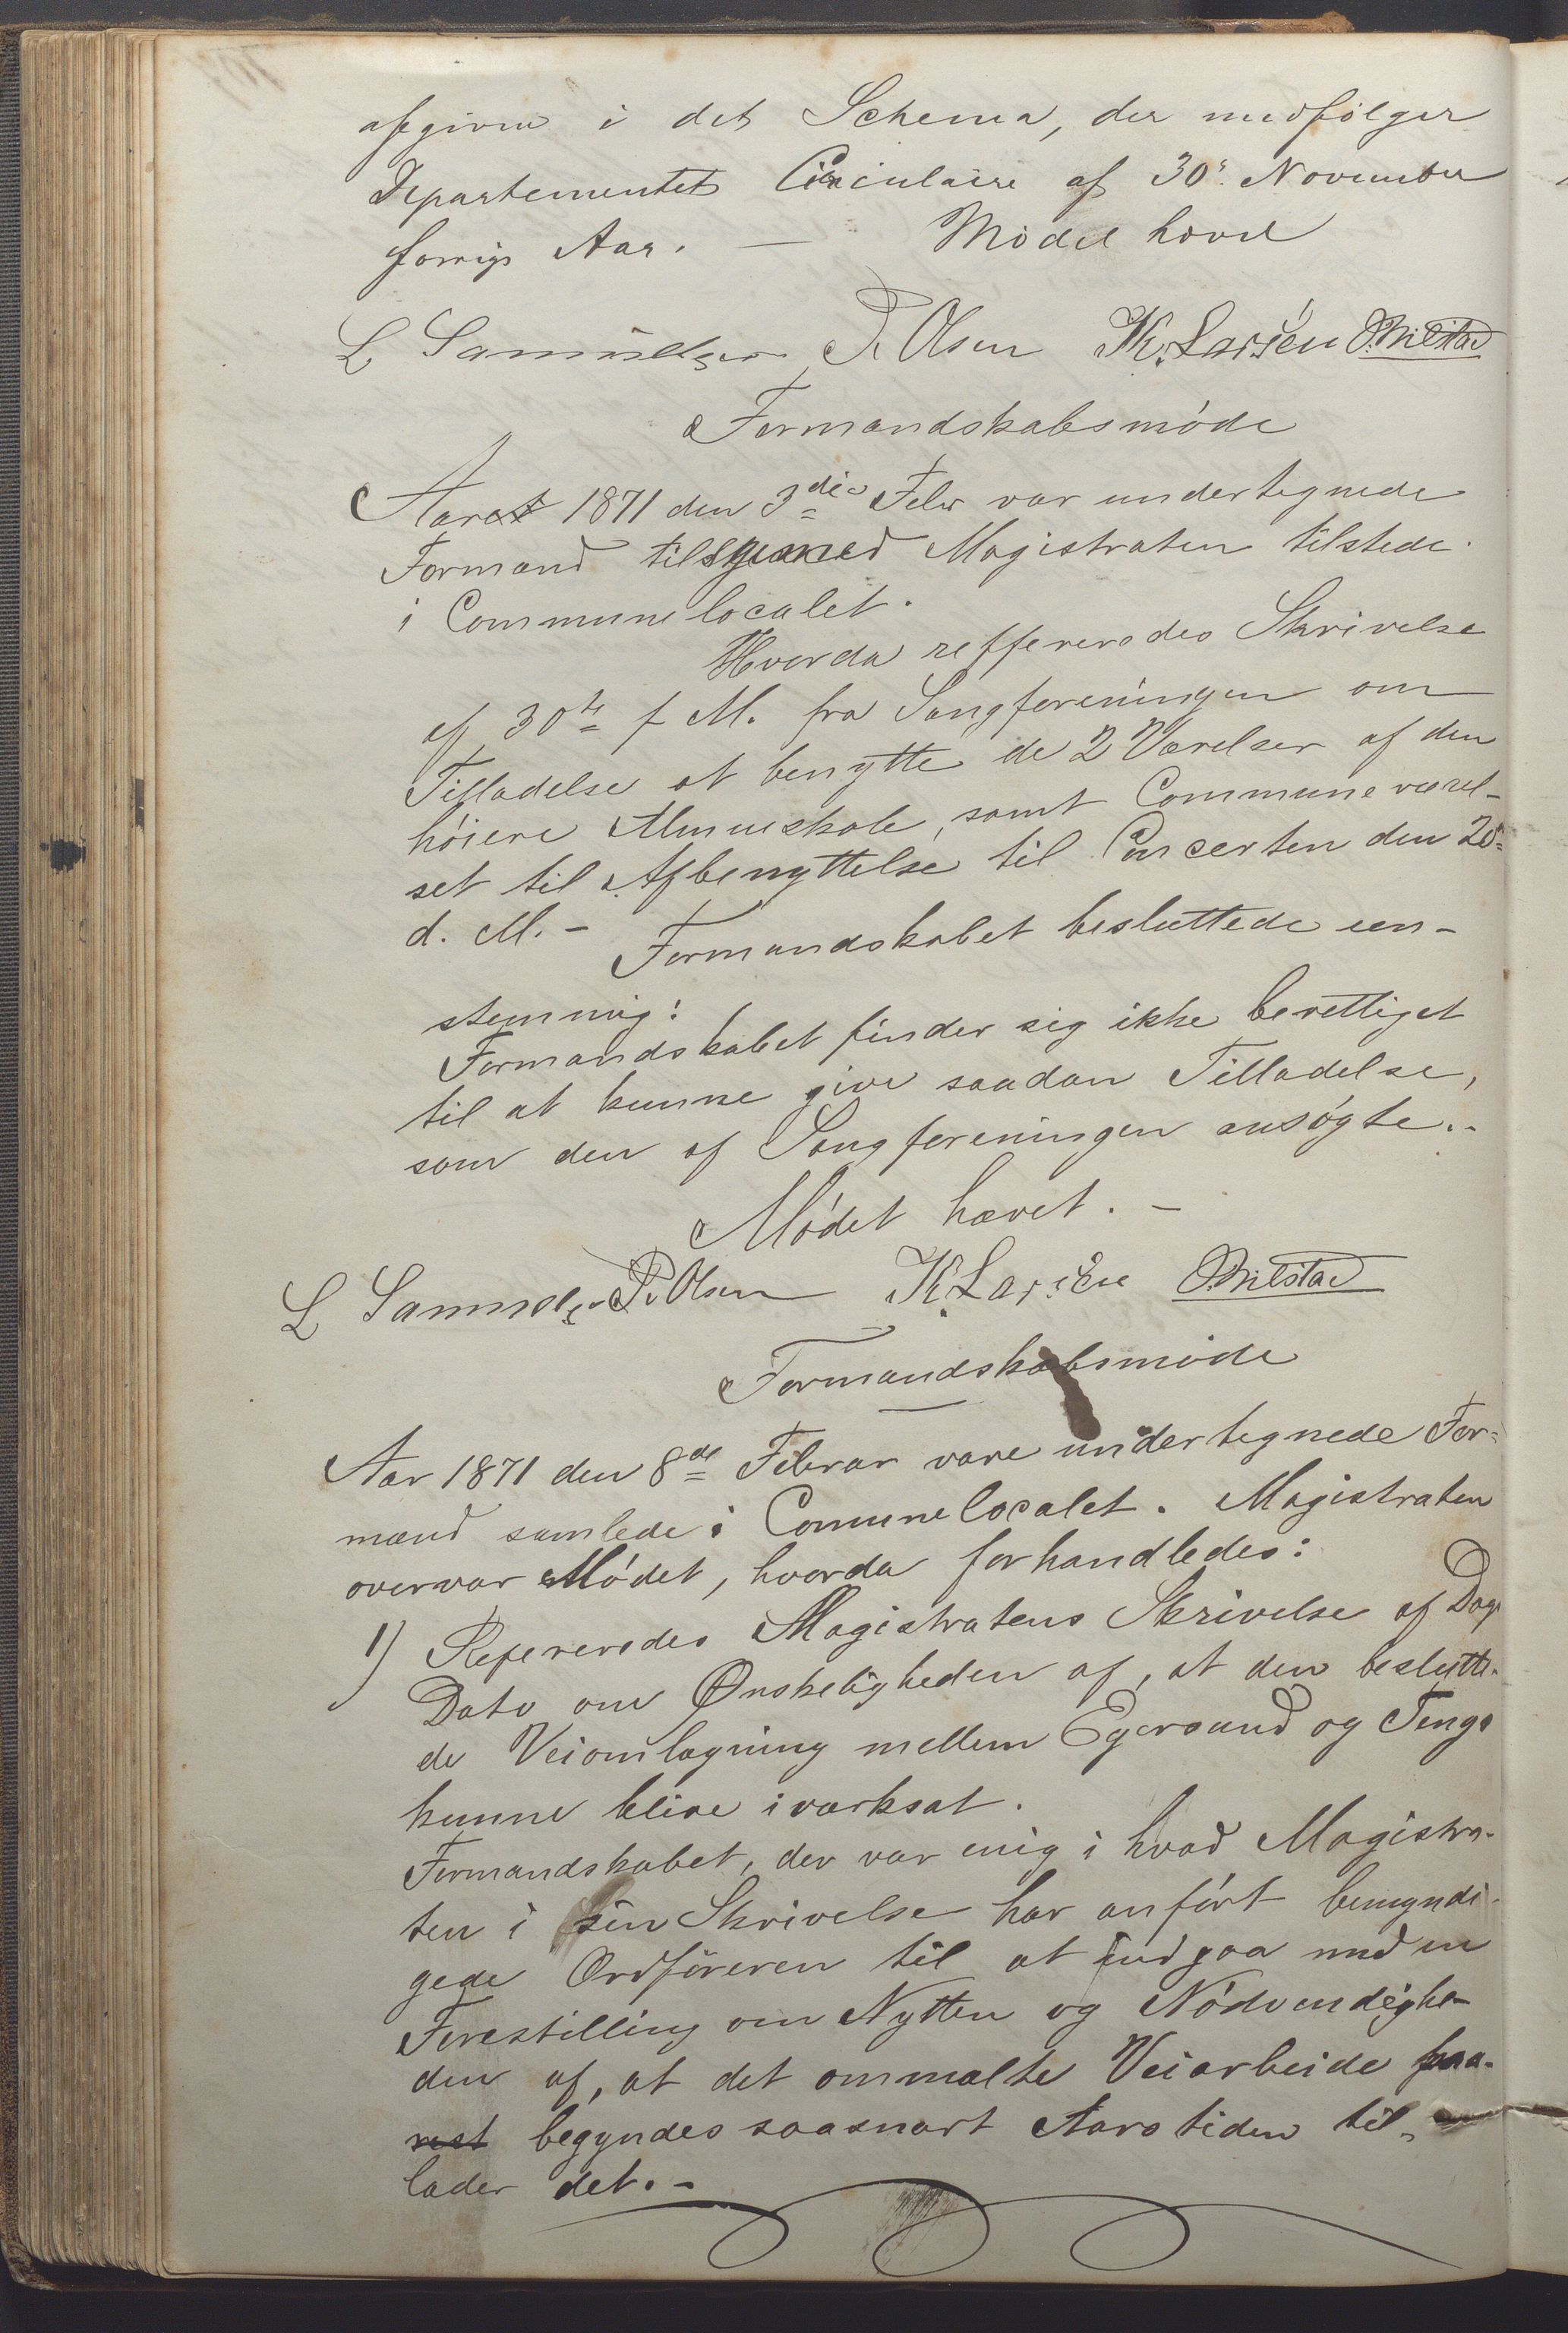 afgiven i det Schema, der medfölger
Departementets Circulaire af 30' November
forrige Aar. — Mödet hævet
L Samuelsen P. Olsen K. Larsen
Formandskabsmöde
Aaret 1871 den 3die Febr var undertegnede
Formænd tilligemed Magistraten tilstede
i Communelocalet.
Hvorda reffereredes Skrivelse
af 30te f M. fra Sangforeningen om
Tilladelse at benytte de 2 Værelser af den
höiere Almueskole, samt Communeværel-
set til Afbenyttelse til Concerten den
d. M. - Formandskabet besluttede een-
stemmig:
Formandskabet finder sig ikke berettiget
til at kunne give saadan Tilladelse,
som den af Sangforeningen ansögte.-
Mödet hævet. -
L Samuelsen P. Olsen K. Larsen
Formandskabsmöde
Aar 1871 den 8de Februar vare undertegnede For-
mænd samlede i Comunelocalet. Magistraten
overvar Mödet, hvorda forhandledes:
1) Refereredes Magistratens Skrivelse af Dags
Dato om Önskeligheden af, at den beslutte-
de Veiomlægning mellem Egersund og Tengs
kunne blive iværksat.
Formandskabet, der var enig i hvad Magistra-
ten i sin Skrivelse har anfört bemyndi-
gede Ordföreren til at indgaa med en
Forestilling om Nytten og Nödvendighe-
den af, at det ommælte Veiarbeide
begyndes saasnart Aarstiden til-
lader det.-